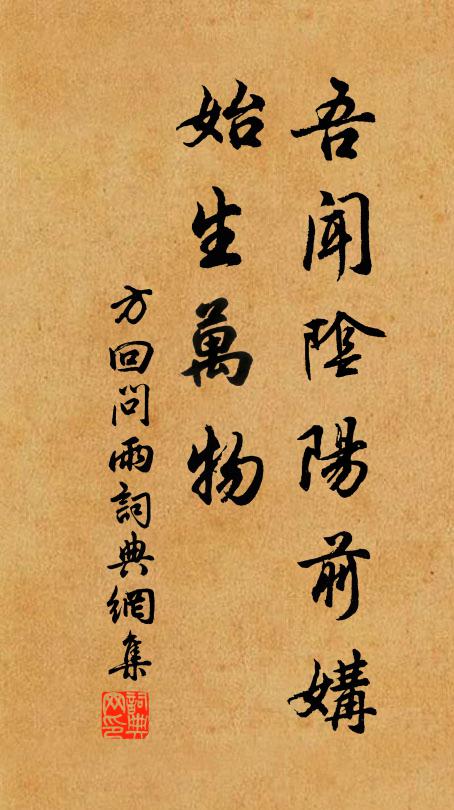 吾聞陰陽前媾
始生萬物
方回問雨詞典網集
詞典網印